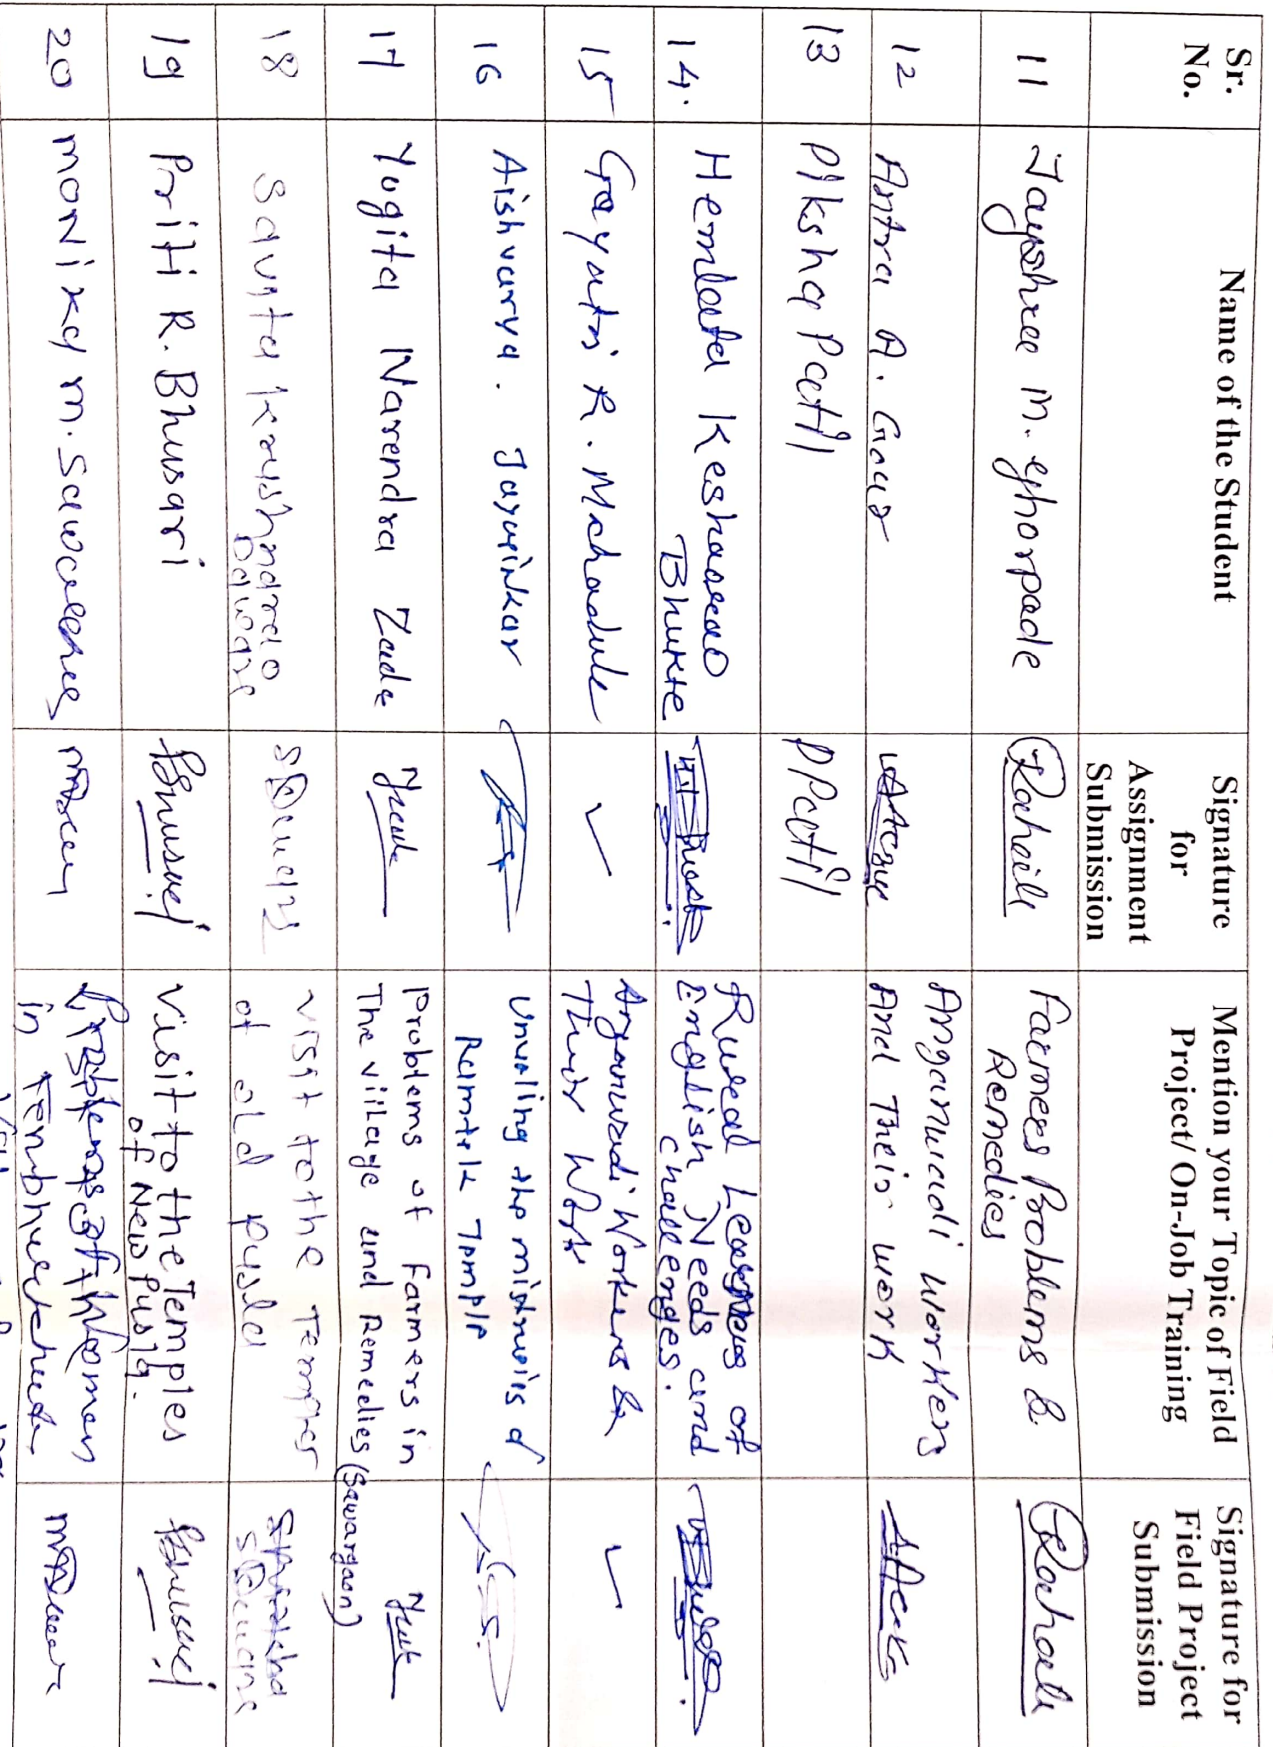 Sr. No.
Name of the Student
Signature for Assignment Submission
Mention your Topic of Field Project/ On-Job Training
Signature for Field Project Submission
11
Jayshree M. Ghorpade
Farmers Problems &
Remedies
12
Antra A. Gaur
Anganwadi workers
And Their work
13
Piksha Patil
PPatil
14.
Hemlata Keshaorao
Bhukte
Rural Learners of
English Needs and
challenges.
15
Gayatri R. Machadule
✓
Anganwadi Workers &
Their Work
✓
16
Aishvarya. Jayurinkar
Unvaling the misteries of
Ramtek Temple
17
Yogita Narendra Zade
Problems of Farmers in
The village and Remedies (Sawargaon)
18
Savita Krushnarao
Daware
visit to the Temples
of old pusla
19
Priti R. Bhusari
visit to the Temples
of New Pusla.
20
Monika M. Sawarkar
Problems of Women
in Tembhurkheda